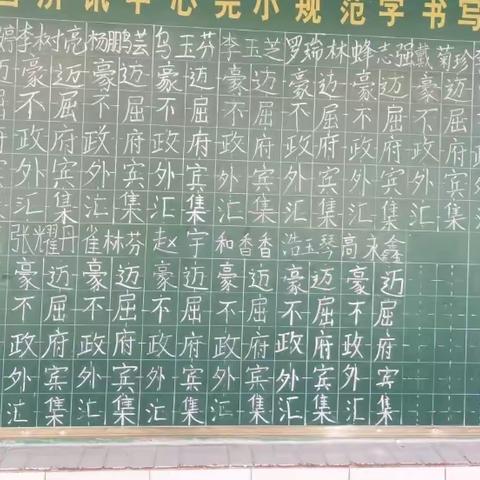 济汛中心完小规范字书写
婷 李树亮 杨鹏芸 乌玉芬 李玉芝 罗瑞林 蜂志强 戴菊珍
迈 豪迈 豪迈 豪迈 豪迈 豪迈 豪迈 豪迈
屈 不屈 不屈 不屈 不屈 不屈 不屈 不屈
府 政府 政府 政府 政府 政府 政府 政府
宾 外宾 外宾 外宾 外宾 外宾 外宾 外宾
集 汇集 汇集 汇集 汇集 汇集 汇集 汇集
张耀丹 崔林芬 赵宇 和香香 浩玉琴 高来鑫
豪迈 豪迈 豪迈 豪迈 豪迈 豪迈
不屈 不屈 不屈 不屈 不屈 不屈
政府 政府 政府 政府 政府 政府
外宾 外宾 外宾 外宾 外宾 外宾
汇集 汇集 汇集 汇集 汇集 汇集